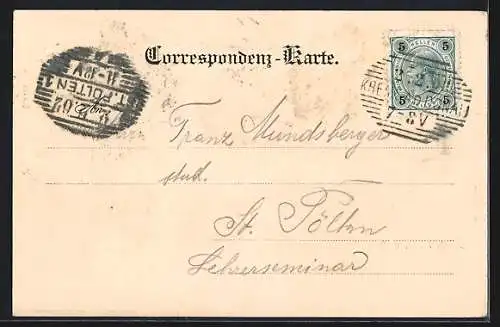 Correspondenz-Karte.
5 HELLER 5
5 5
ST. PÖLTEN 1
11-12V
02
KREMS
7-8V
Franz Mundsberger
stud.
St. Pölten
Lehrerseminar